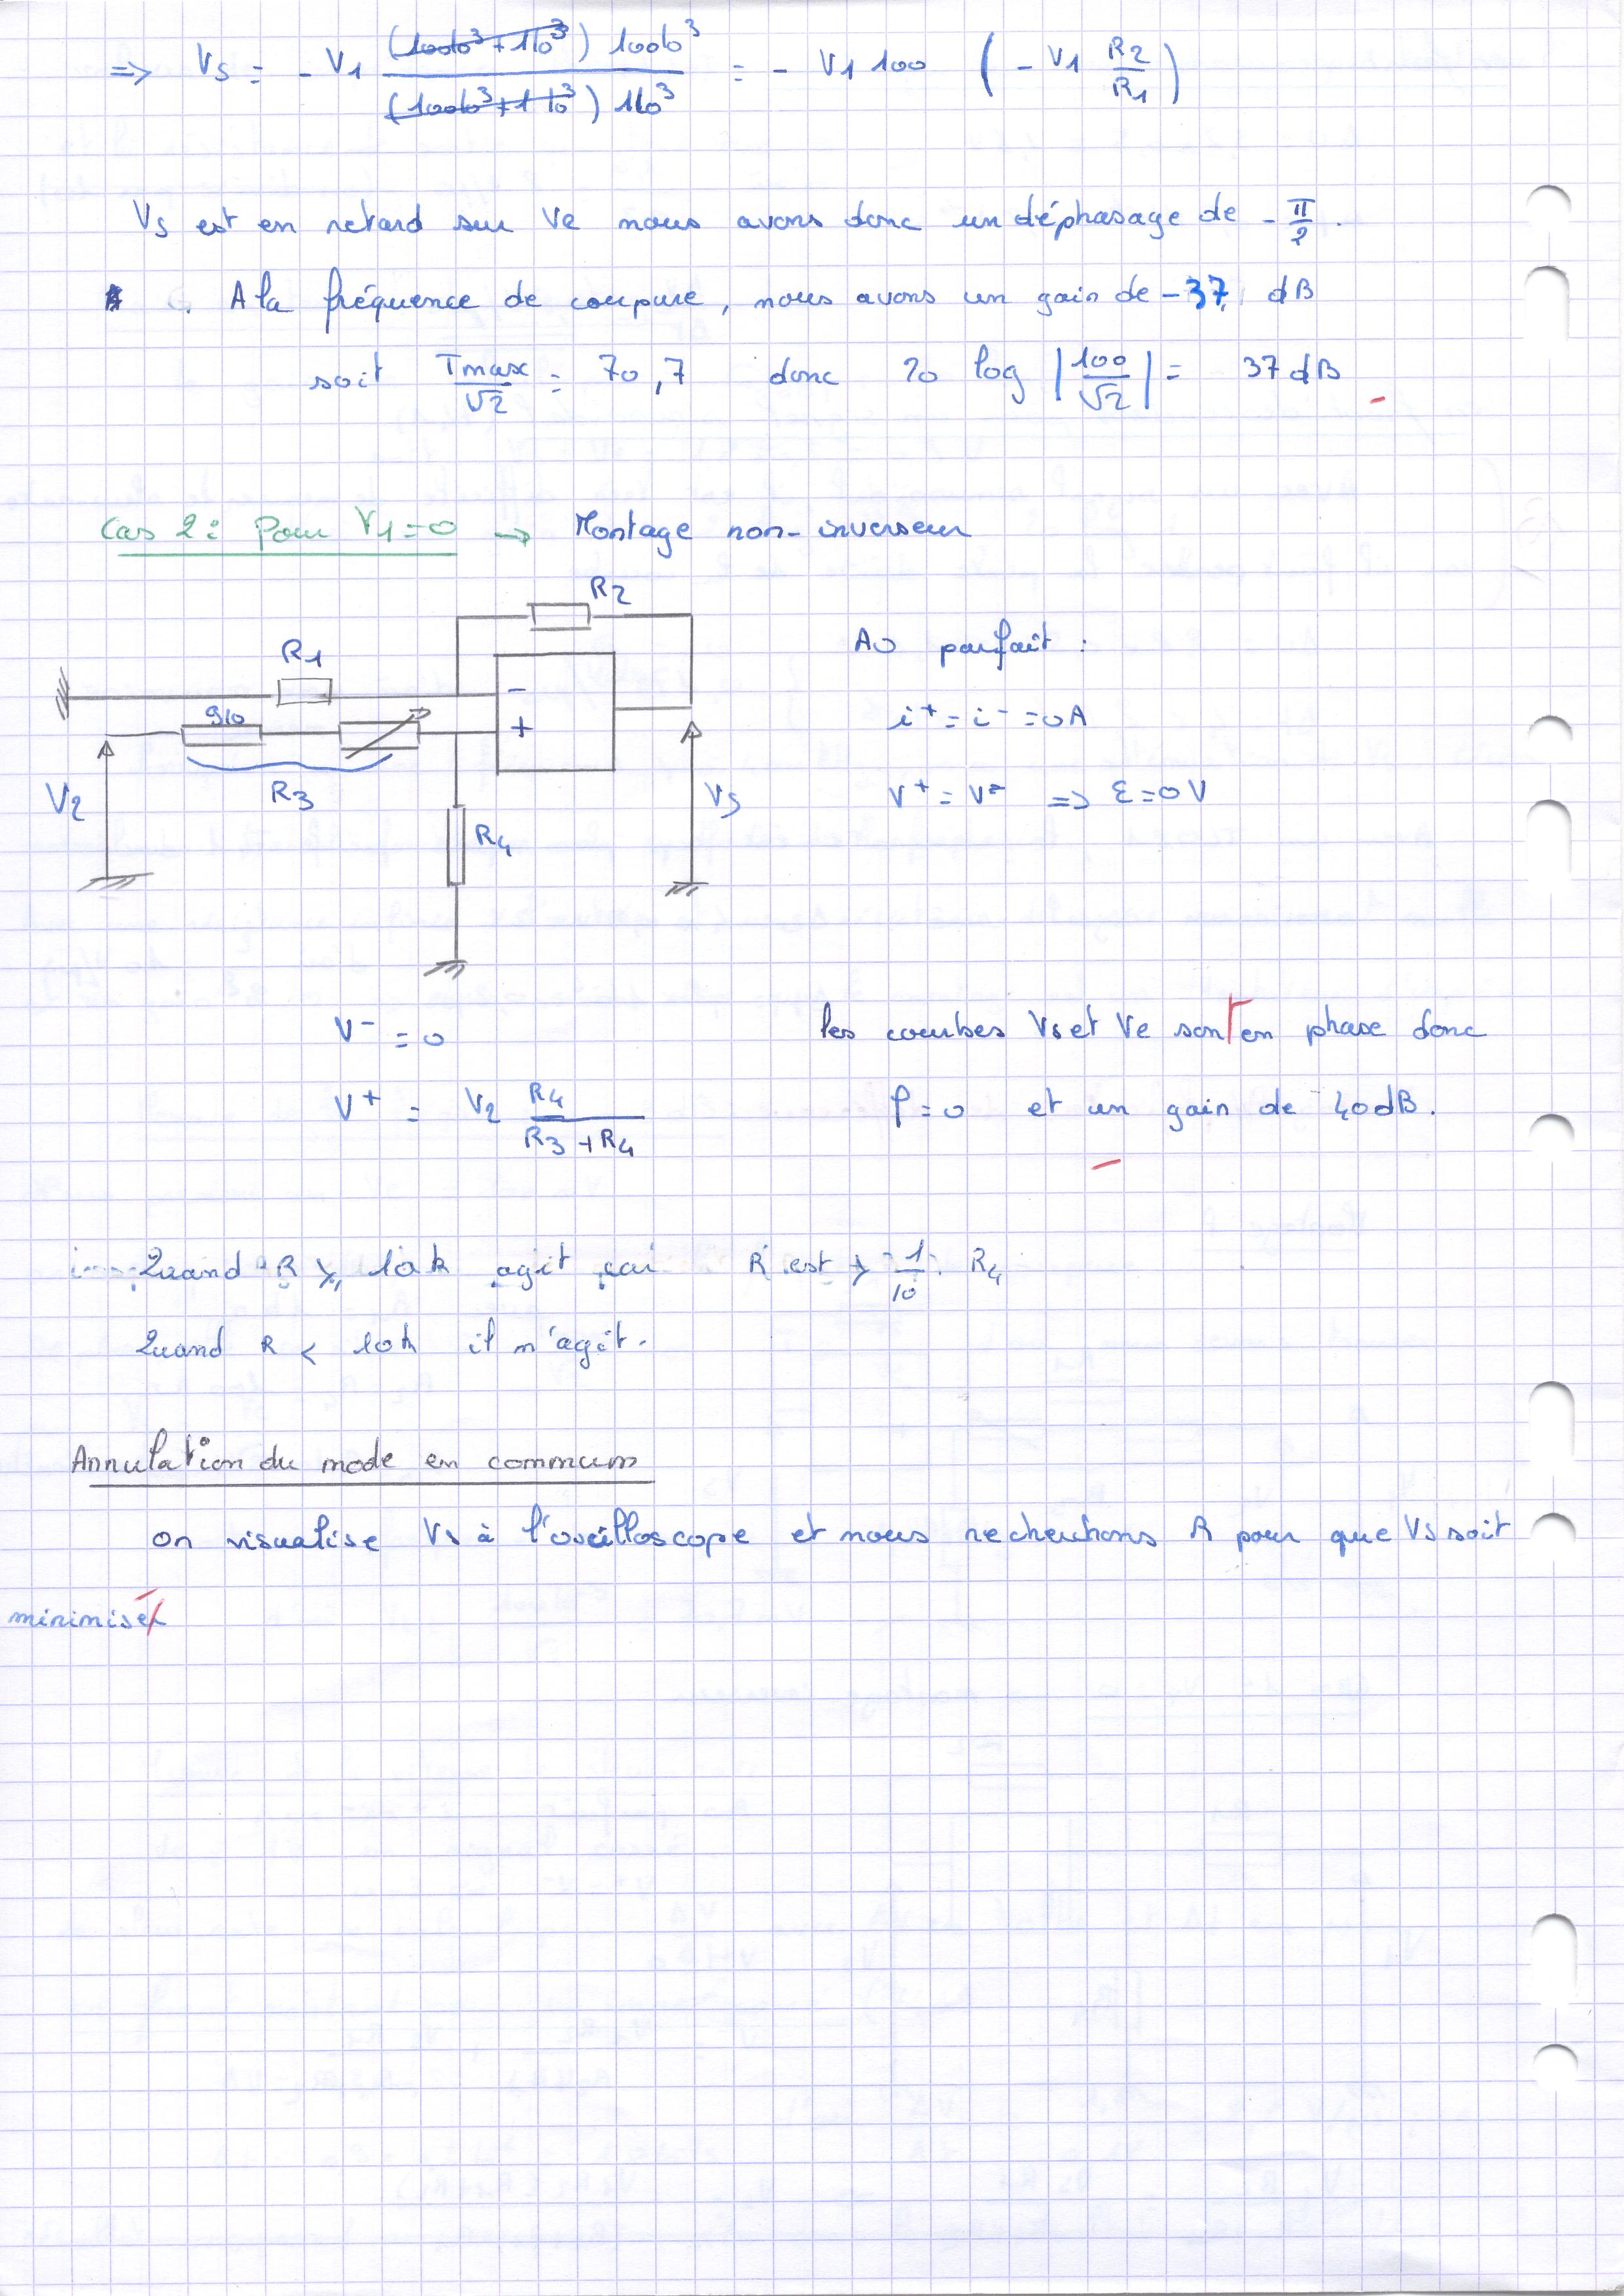 => Vs = - V1 (100 10³ + 1 10³) 100 10³ / (100 10³ + 1 10³) 1 10³ = - V1 100 ( - V1 R2/R1 )
Vs est en retard sur Ve nous avons donc un déphasage de - π/2 .
A la fréquence de coupure, nous avons un gain de - 37 dB
soit Tmax/√2 = 70,7 donc 20 log |100/√2| = 37 dB
Cas 2 : Pour V1 = 0 → Montage non-inverseur
R2
R1
-
910
+
R3
V2
R4
Vs
AO parfait :
i+ = i- = 0A
V+ = V- => ε = 0V
V- = 0
V+ = V2 R4 / (R3 + R4)
les courbes Vs et Ve sont en phase donc
φ = 0 et un gain de 40dB.
Quand R ⩾ 10k agit car R est > 1/10 R4
Quand R < 10k il n'agit.
Annulation du mode en commun
On visualise Vs à l'oscilloscope et nous recherchons R pour que Vs soit
minimisé